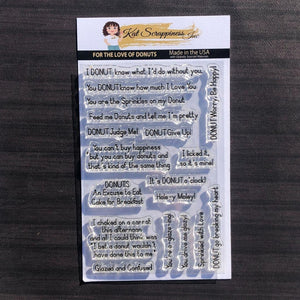 Kat Scrappiness, Inc.
FOR THE LOVE OF DONUTS
Made in the USA
I DONUT know what I'd do without you.
You DONUT know how much I Love You
You are the Sprinkles on my Donut.
Feed me Donuts and tell me I'm pretty
DONUT Judge Me!
DONUT Give Up!
DONUT Worry, Be Happy!
You can't buy happiness
but you can buy donuts and
that's kind of the same thing
I licked it,
so it's mine!
DONUTS
An Excuse to Eat
Cake for Breakfast
It's DONUT o'clock!
Hole-y Moley!
I choked on a carrot
this afternoon
and all I could think was
"I bet a donut wouldn't
have done this to me
Glazed and Confused
Sprinkled with Love
DONUT go breaking my heart